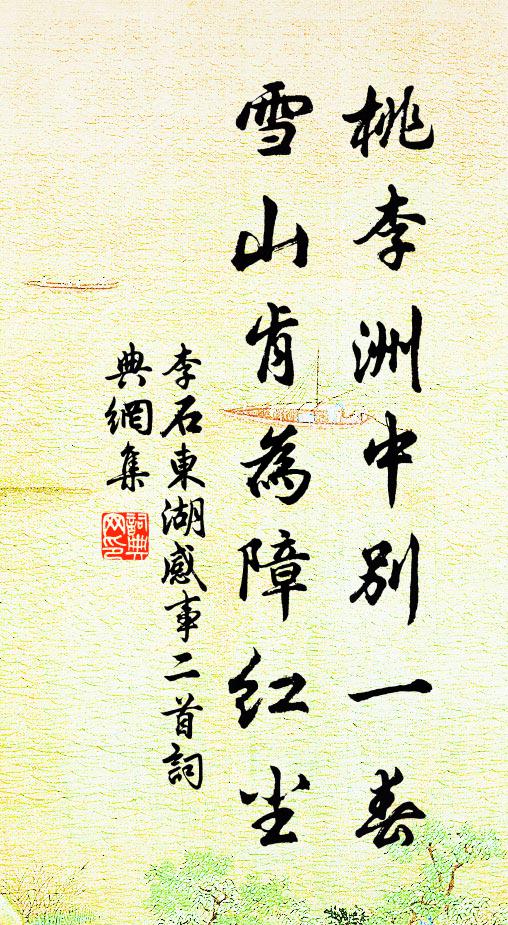 桃李洲中別一春
雪山肯為障紅尘
李石東湖感事二首詞
典網集
詞典网印